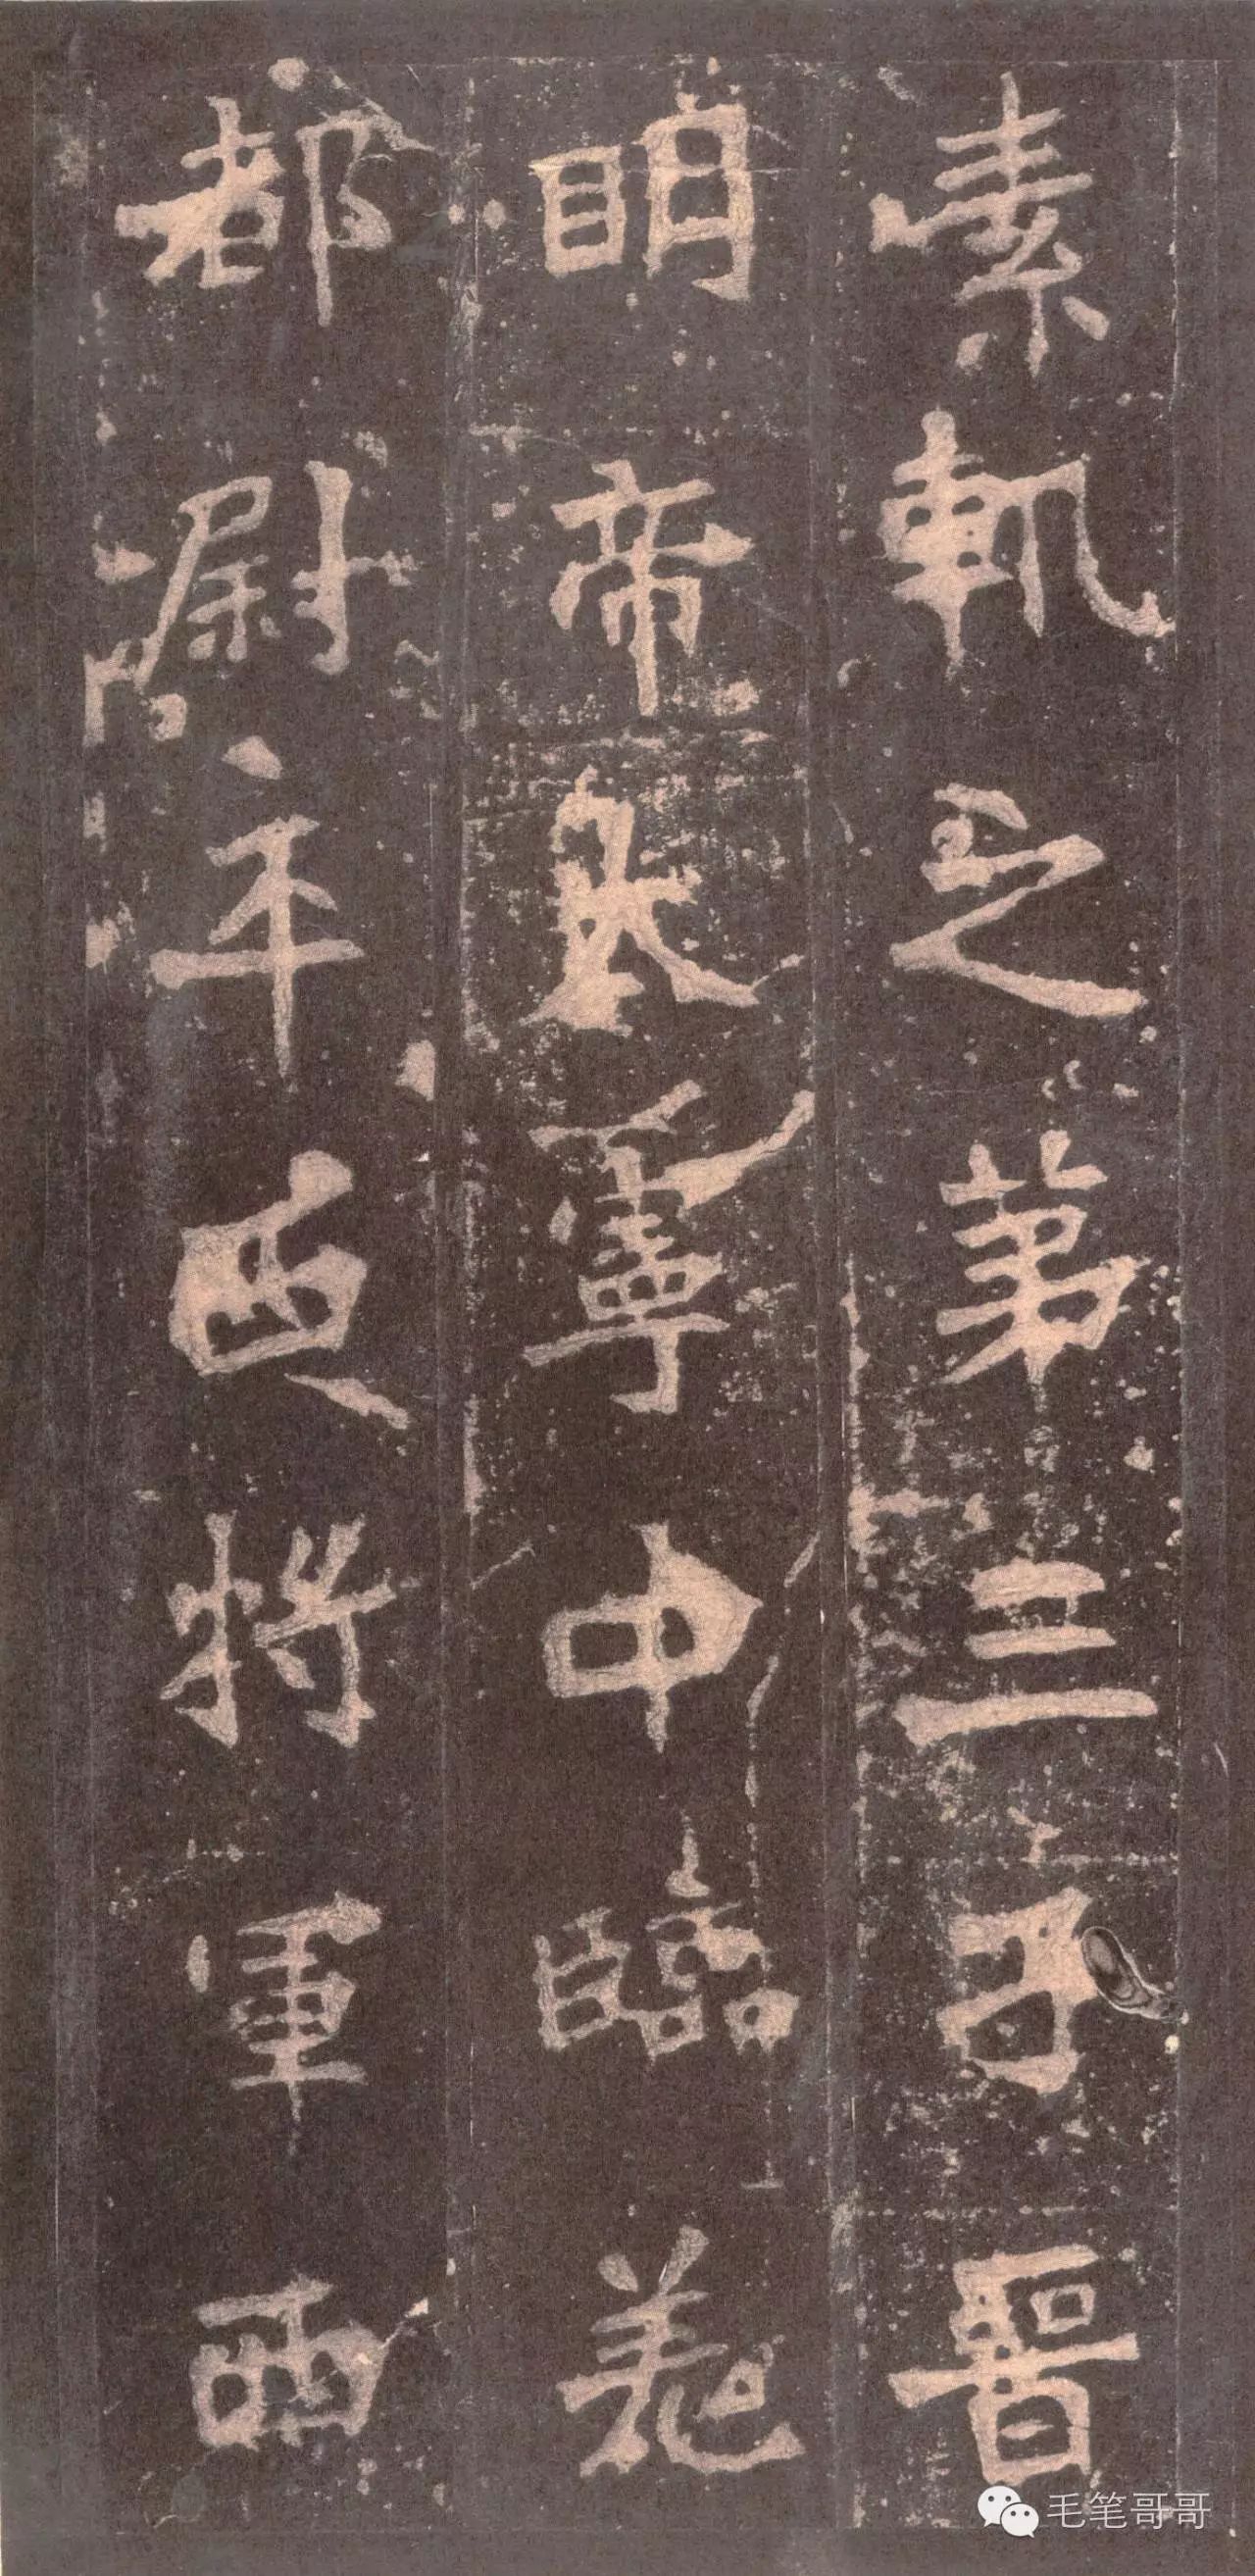 素軌之第三子晉
明帝太寧中臨羌
都尉平西將軍西
毛笔哥哥